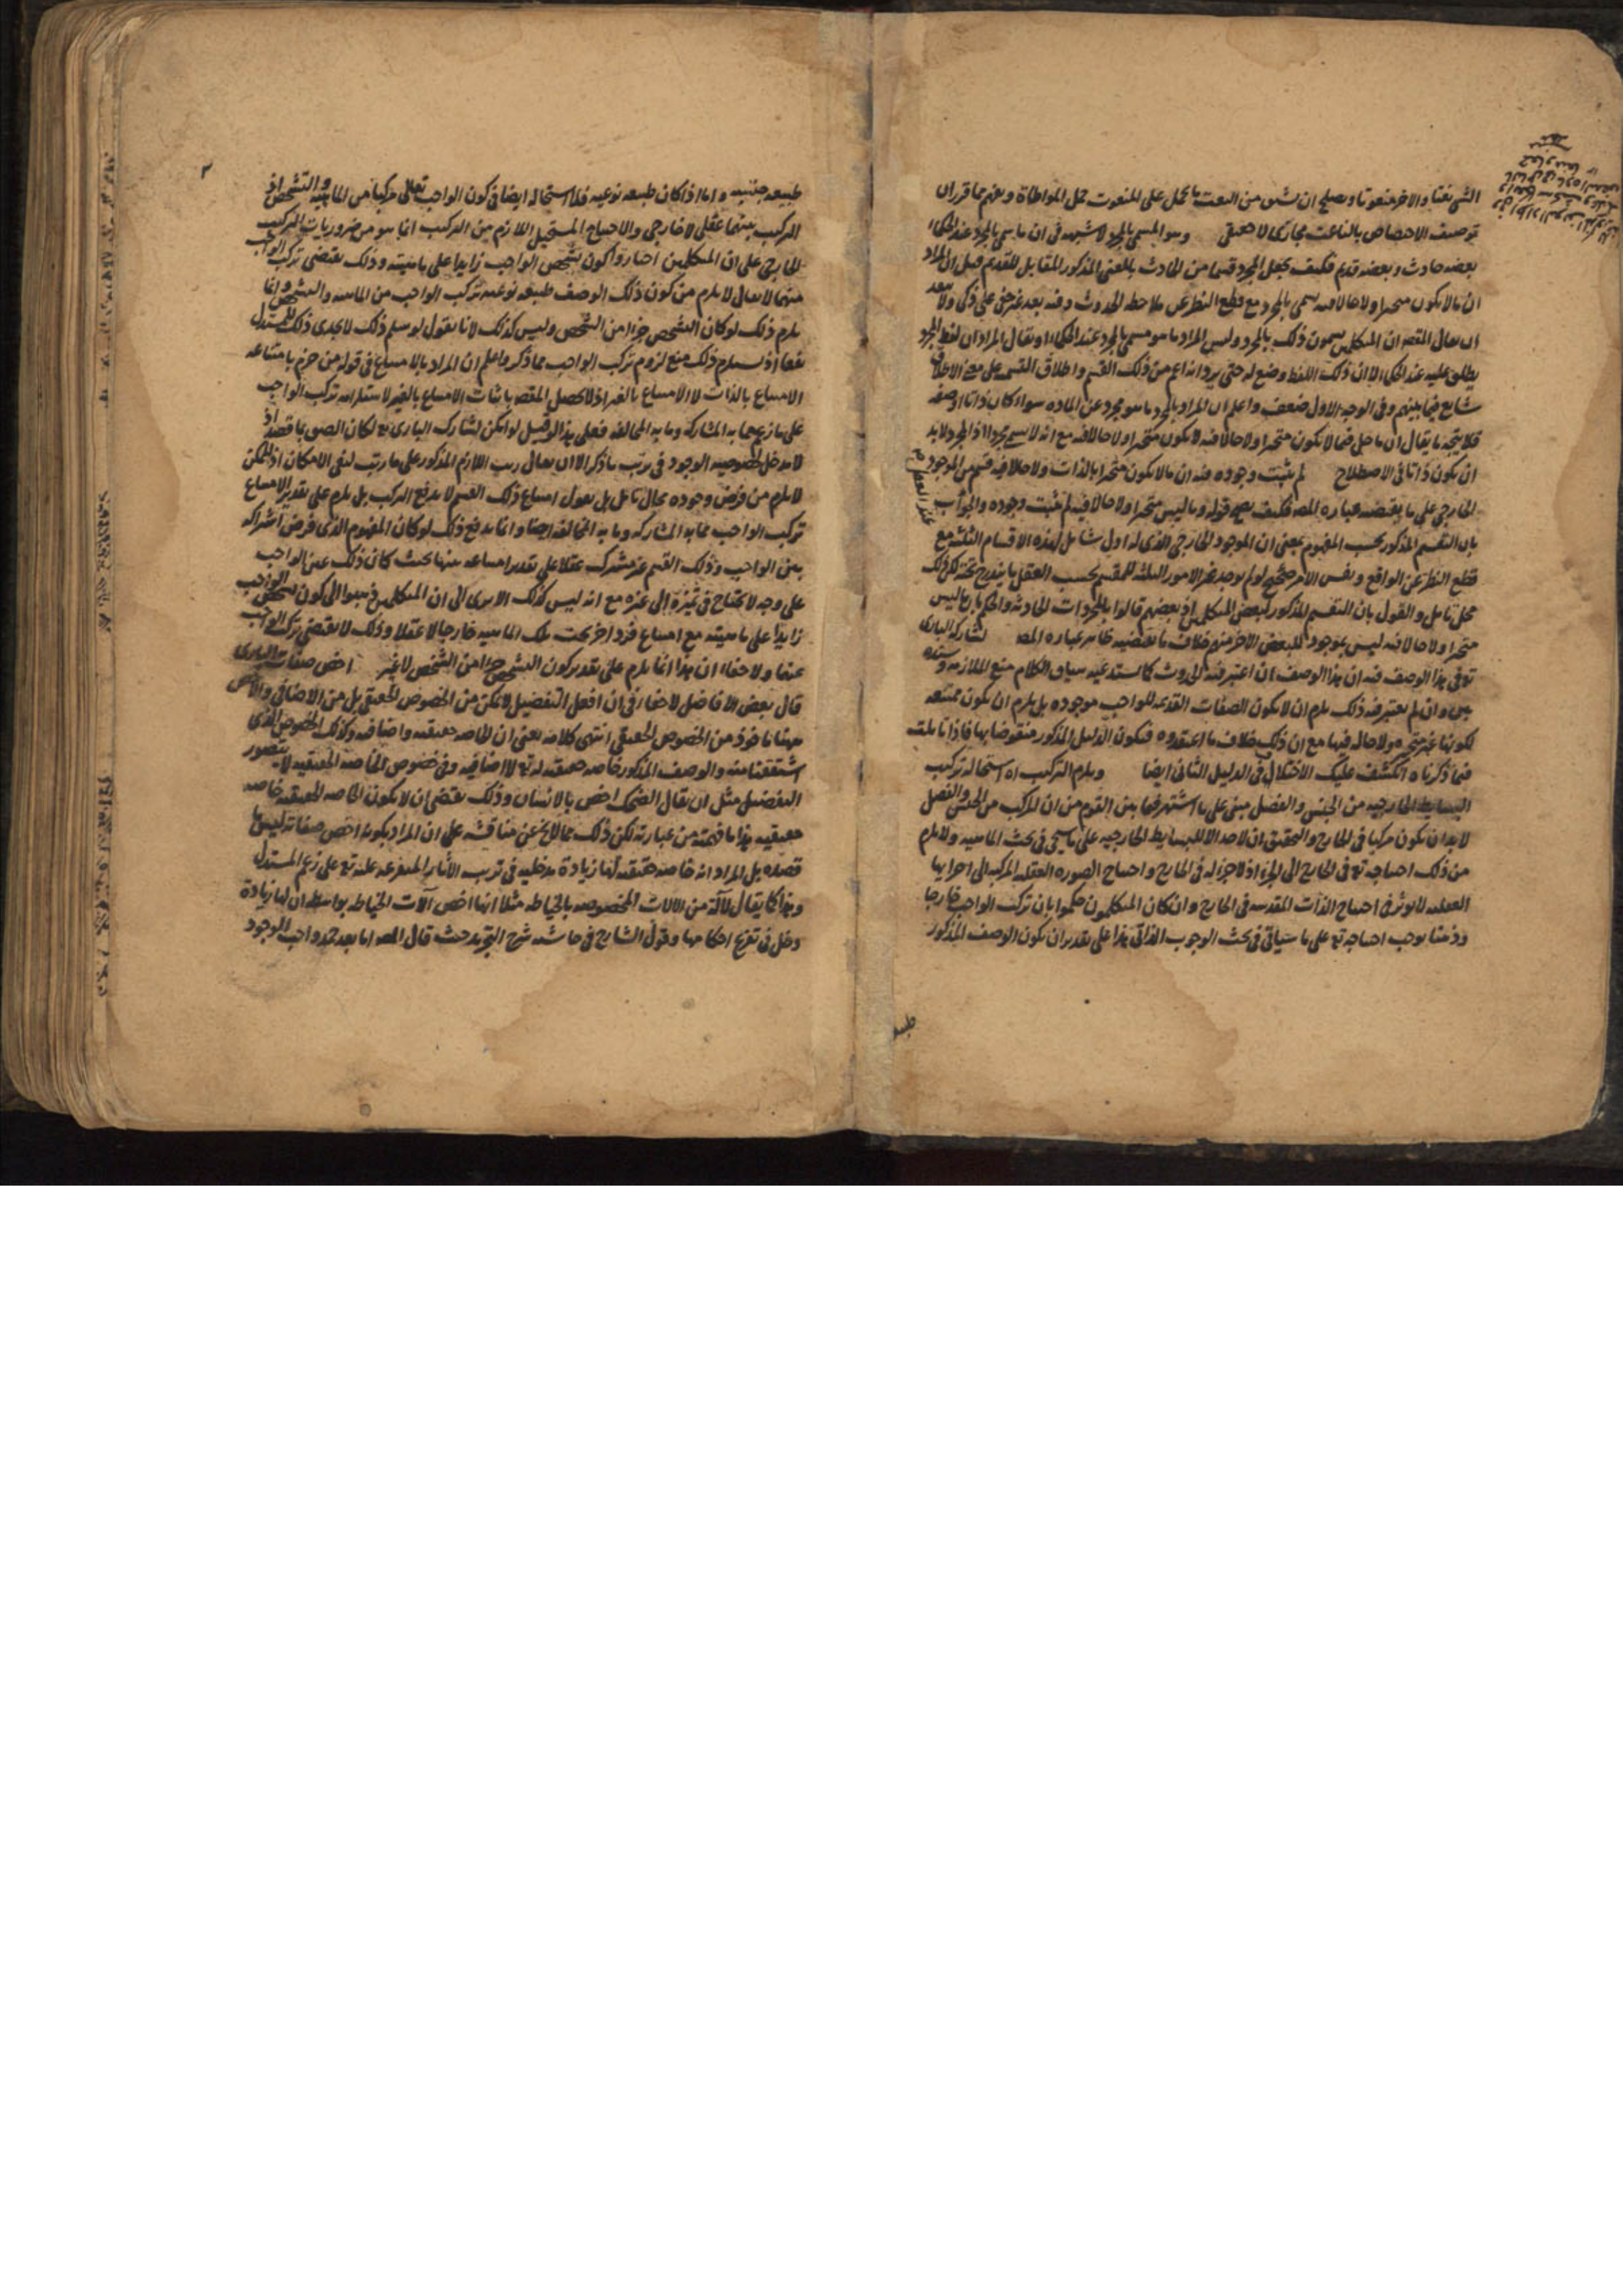 الشي نعتا والاخر منعوتا ويصلح ان يشتق من النعت ما يحمل على المنعوت حمل المواطاة ويفهم مما قرر ان
توصيف الاختصاص بالناعت مجازى لا حقيقى وهو المسمى بالمجرد لا شبهة فى ان ما يسمى بالمجرد عند الحكماء
بعضه حادث وبعضه قديم فكيف يجعل المجرد قسما من الحادث بالمعنى المذكور المقابل للقديم قيل ان المراد
ان ما لا يكون متحيزا ولا حالا فيه يسمى بالمجرد مع قطع النظر عن ملاحظة الحدوث وفيه بعد غير خفى على ذكى ولا يبعد
ان يقال المقصود ان المتكلمين يسمون ذلك بالمجرد وليس المراد ما هو مسمى بالمجرد عند الحكماء او يقال المراد ان لفظ المجرد
يطلق عليه عند الحكماء لا ان ذلك اللفظ وضع له حتى يرد انه اعم من ذلك القسم واطلاق القسم على معنى الاطلاق
شايع فيما بينهم وفى الوجه الاول ضعف واعلم ان المراد بالمجرد ما هو مجرد عن المادة سواء كان ذاتا او صفة
فلا يتجه ما يقال ان ما حل فيما لا يكون متحيزا ولا حالا فيه لا يكون متحيزا ولا حالا فيه مع انه لا يسمى مجردا اذ المجرد لا بد
ان يكون ذاتا فى الاصطلاح لم يثبت وجوده فيه ان ما لا يكون متحيزا بالذات ولا حالا فيه قسم من الموجود
الخارجى على ما يقتضيه عبارة المصـ فكيف يصح قوله وما ليس متحيزا ولا حالا فيه لم يثبت وجوده والجواب
بان التقسيم المذكور بحسب المفهوم بمعنى ان الموجود الخارجى الذى له اول شامل لهذه الاقسام الثلثة مع
قطع النظر عن الواقع ونفس الامر صحيح لو لم يوجد غير الامور الثلثة للمقسم بحسب العقل ما يندرج تحته كل ذلك
محل تامل والقول بان التقسيم المذكور لبعض المتكلمين اذ بعضهم قالوا بالمجردات الحادثة والحكم بان ما ليس
متحيزا ولا حالا فيه ليس بموجود للبعض الاخر منهم خلاف ما يقتضيه ظاهر عبارة المصـ لشاركه البارى
تع فى هذا الوصف فيه ان هذا الوصف ان اعتبر فيه الحدوث كما يستدعيه سياق الكلام منع الملازمة وسنده
بين وان لم يعتبر فيه ذلك يلزم ان لا يكون الصفات القديمة للواجب موجودة بل يلزم ان يكون ممتنعة
لكونها غير متحيزة ولا حالة فيها مع ان ذلك خلاف ما اعتقدوه فيكون الدليل المذكور منقوضا بها فاذا تاملت
فيما ذكرناه انكشف عليك الاختلال فى الدليل الثانى ايضا ويلزم التركيب اه استحالة تركيب
البسايط الخارجية من الجنس والفصل مبنى على ما اشتهر فيما بين القوم من ان المركب من الجنس والفصل
لا بد ان يكون مركبا فى الخارج والتحقيق ان لا حد الا للبسايط الخارجية على ما سيجئ فى بحث الماهية ولا يلزم
من ذلك احتياجه تع فى الخارج الى الجزء اذ لا جزء له فى الخارج واحتياج الصورة العقلية المركبة الى اجزايها
العقلية لا يوثر فى احتياج الذات المقدسة فى الخارج وان كان المتكلمون حكموا بان تركب الواجب خارجا
وذهنا يوجب احتياجه تع على ما سياتى فى بحث الوجوب الذاتى هذا على تقدير ان يكون الوصف المذكور
٢
طبيعة جنسية واما اذا كان طبيعة نوعية فلا استحالة ايضا فى كون الواجب تعالى مركبا من الماهية والتشخص اذ
التركيب بينهما عقلى لا خارجى والاحتياج المستحيل اللازم من التركيب انما هو من ضروريات التركيب
الخارجى على ان المتكلمين اختاروا كون تشخص الواجب زايدا على ماهيته وذلك يقتضى تركب الواجب
منهما لا يقال لا يلزم من كون ذلك الوصف طبيعة نوعية تركب الواجب من الماهية والتشخص وانما
يلزم ذلك لو كان التشخص جزءا من الشخص وليس كذلك لانا نقول لو سلم ذلك لا يجدى ذلك للمستدل
نفعا اذ يستلزم ذلك منع لزوم تركب الواجب مما ذكر واعلم ان المراد بالامتناع فى قوله من جزم بامتناعه
الامتناع بالذات لا الامتناع بالغير اذ لا يحصل المقصـ باثبات الامتناع بالغير لاستلزامه تركب الواجب
على ما زعم مما به المشاركة وما به المخالفة فعلى هذا لو قيل لو امكن لشارك البارى تع لكان الصق بما قصد اذ
لا مدخل لخصوصية الوجود فى ترتب ما ذكر الا ان يقال رتب اللازم المذكور على ما رتب لنفى الامكان اذ الممكن
لا يلزم من فرض وجوده محال تامل بل نقول امتناع ذلك القسم لا يدفع التركيب بل يلزم على تقدير الامتناع
تركب الواجب مما به المشاركة وما به المخالفة ايضا وانما يدفع ذلك لو كان المفهوم الذى فرض اشتراكه
بين الواجب وذلك القسم غير مشترك عقلا على تقدير امتناعه بينهما بحيث كان ذلك عين الواجب
على وجه لا يحتاج فى تميزه الى غيره مع انه ليس كذلك الا يرى الى ان المتكلمين ذهبوا الى كون تشخص الواجب
زايدا على ماهيته مع امتناع فرد اخر تحت تلك الماهية خارجا لا عقلا وذلك لا يقتضى تركب الواجب
عقلا ولا خفاء ان هذا انما يلزم على تقدير كون التشخص جزءا من الشخص لا غير اخص صفات البارى
قال بعض الافاضل لا خفاء فى ان افعل التفضيل لا يمكن من الخصوص الحقيقى بل من الاضافى والاخص
ههنا ماخوذ من الخصوص الحقيقى انتهى كلامه يعنى ان الخاصة حقيقية واضافية وكذلك الخصوص الذى
اشتققنا منه والوصف المذكور خاصة حقيقية له تع لا اضافية وفى خصوص الخاصة الحقيقية لا يتصور
التفضيل مثل ان يقال الضحك اخص بالانسان وذلك يقتضى ان لا يكون الخاصة الحقيقية خاصة
حقيقية هذا ما فهمته من عبارته لكن ذلك مما لا يخ عن مناقشة على ان المراد بكونه اخص صفاته ليس ما
قصده بل المراد انه خاصة حقيقية لها زيادة مدخلية فى ترتب الآثار المتفرعة عليه تع على زعم المستدل
وهذا كما يقال لآلة من الآلات المخصوصة بالخياطة مثلا انها اخص آلات الخياطة بواسطة ان لها زيادة
دخل فى تفرع احكامها وقول الشارح فى حاشية شرح التجريد حيث قال المصـ اما بعد حمد واجب الوجود